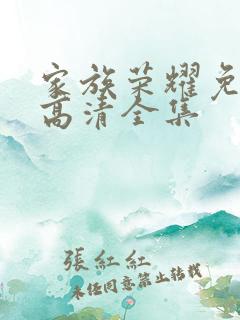 家族荣耀免
高清全集
張紅紅
未经同意禁止转载